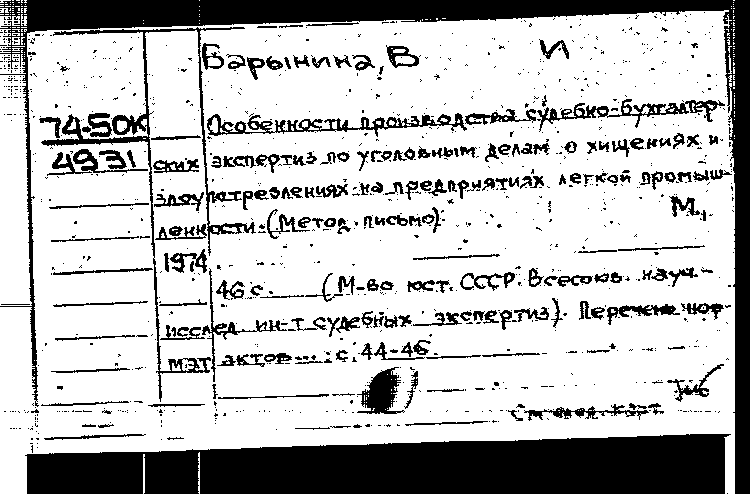 Барынина, В И
74-50К
4931
Особенности производства судебно-бухгалтер-
ских экспертиз по уголовным делам о хищениях и
злоупотреблениях на предприятиях легкой промыш-
ленности. (Метод. письмо). М.,
1974.
46 с. (М-во юст. СССР. Всесоюз. науч.-
исслед. ин-т судебных экспертиз). Перечень нор-
мат. актов...: с. 44-46.
См. след. карт.